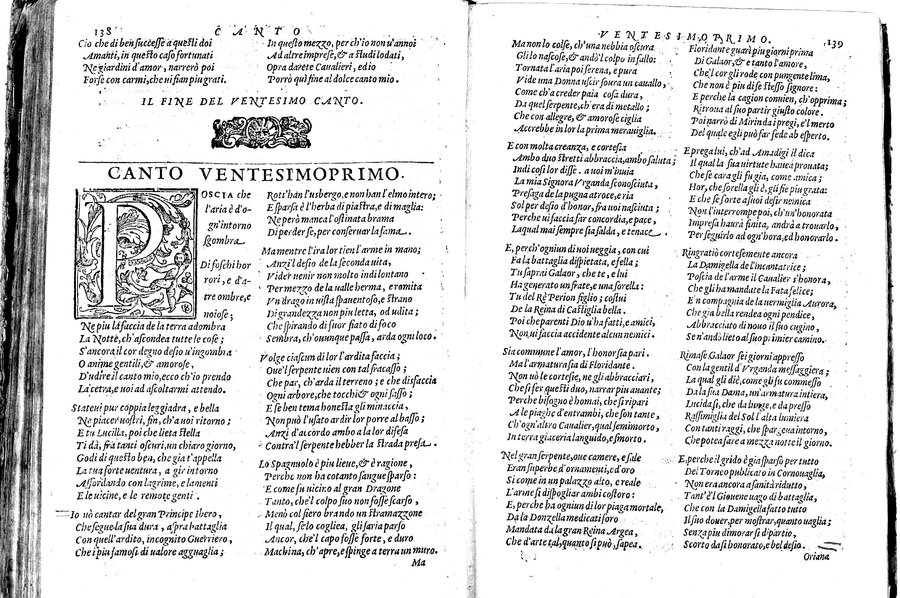 138
CANTO
Cio che di ben successe a questi doi
Amanti, in questo caso fortunati
Ne giardini d'amor, narrerò poi
Forse con carmi, che vi sian piu grati.
In questo mezzo, per ch'io non v'annoi
Ad altre imprese, & a studi lodati,
Opra darete Cavalieri, ed io
Porrò qui fine al dolce canto mio.
IL FINE DEL VENTESIMO CANTO.
CANTO VENTESIMOPRIMO.
POSCIA che
l'aria è d'o-
gn'intorno
sgombra
Di foschi hor
rori, e d'a-
tre ombre, e
noiose;
Ne piu la faccia de la terra adombra
La Notte, ch'ascondea tutte le cose;
S'ancora il cor degno desio v'ingombra
O anime gentili, & amorose,
D'udire il canto mio, ecco ch'io prendo
La cetra, e voi ad ascoltarmi attendo.
Statevi pur coppia leggiadra, e bella
Ne piacer vostri, fin, ch'a voi ritorno;
E tu Lucilla, poi che lieta stella
Ti dà, fra tanti oscuri, un chiaro giorno,
Godi di questo ben, che gia t'appella
La tua forte ventura, a gir intorno
Assordando con lagrime, e lamenti
E le vicine, e le remote genti.
Io vò cantar del gran Principe Ibero,
Che segue la sua dura, aspra battaglia
Con quell'ardito, incognito Guerriero,
Che i piu famosi di valore agguaglia;
Rott'han l'usbergo, e non han l'elmo intero;
E sparsa è l'herba di piastra, e di maglia:
Ne però manca l'ostinata brama
Di perder se, per conservar la fama.
Ma mentre l'ira lor tien l'arme in mano;
Anzi'l desio de la seconda vita,
Vider venir non molto indi lontano
Per mezzo de la valle herma, e romita
Un drago in vista spaventoso, e strano
Di grandezza non piu letta, od udita;
Che spirando di fuor fiato di foco
Sembra, ch'ovunque passa, arda ogni loco.
Volge ciascun di lor l'ardita faccia;
Que'l serpente vien con tal fracasso;
Che par, ch'arda il terreno; e che disfaccia
Ogni arbore, che tocchi & ogni sasso;
E se ben tema honesta gli minaccia,
Non può l'usato ardir lor porre al basso;
Anzi d'accordo ambo a la lor difesa
Contra'l serpente hebber la strada presa.
Lo Spagnuolo è piu lieve, & è ragione,
Perche non ha cotanto sangue sparso:
E come fu vicino al gran Dragone
Tanto, che'l colpo suo non fosse scarso,
Menò col fiero brando un stramazzone
Il qual, se lo cogliea, gli saria parso
Ancor, che'l capo fosse forte, e duro
Machina, ch'apre, e spinge a terra un muro.
Ma
VENTESIMOPRIMO.
139
Ma non lo colse, ch'una nebbia oscura
Gli lo nascose, & andò'l colpo in fallo:
Tornata l'aria poi serena, e pura
Vide una Donna uscir sovra un cavallo,
Come ch'a creder paia cosa dura,
Da quel serpente, ch'era di metallo;
Che con allegre, & amorose ciglia
Accrebbe in lor la prima meraviglia.
E con molta creanza, e cortesia
Ambo duo stretti abbraccia, ambo saluta;
Indi così lor disse. a voi m'invia
La mia Signora Urganda sconosciuta,
Presaga de la pugna atroce, e ria
Sol per desio d'honor, fra voi nasciuta;
Perche vi faccia far concordia, e pace,
La qual mai sempre sia salda, e tenace.
E, perch'ognun di voi veggia, con cui
Fa la battaglia dispietata, e fella;
Tu saprai Galaor, che te, e lui
Ha generato un frate, e una sorella:
Tu del Rè Perion figlio; costui
De la Reina di Castiglia bella.
Poi che parenti Dio v'ha fatti, e amici,
Non vi faccia accidente alcun nemici.
Sia commune l'amor, l'honor sia pari.
Ma l'armatura sia di Floridante.
Non vò le cortesie, ne gli abbracciari,
Che si fer questi duo, narrar piu avante;
Perche bisogno è homai, che si ripari
A le piaghe d'entrambi, che son tante,
Ch'ogn'altro Cavalier, qual semimorto,
In terra giaceria languido, e smorto.
Nel gran serpente, que camere, e sale
Eran superbe d'ornamenti, ed'oro
Si come in un palazzo alto, e reale
L'arme si dispogliar ambi costoro:
E, perche ha ognun di lor piaga mortale,
Da la Donzella medicati foro
Mandata da la gran Reina Argea,
Che d'arte tal, quanto si può, sapea.
Floridante guarì piu giorni prima
Di Galaor, & e tanto l'amore,
Che'l cor gli rode con pungente lima,
Che non è piu di se stesso signore:
E perche la cagion convien, ch'opprima;
Ritrova al suo partir giusto colore.
Poi narrò di Mirinda i pregi, e'l merto
Del quale egli può far fede ab esperto.
E prega lui, ch'ad Amadigi il dica
Il qual la sua virtute havea provata;
Che se cara gli fu gia, come amica;
Hor, che sorella gli è, gli sie piu grata:
E che se forte a suoi desir nemica
Non l'interrompe poi, ch'un'honorata
Impresa haurà finita, andrà a trovarlo,
Per seguirlo ad ogn'hora, ed honorarlo.
Ringratiò cortesemente ancora
La Damigella de l'incantatrice;
Poscia de l'arme il Cavalier s'honora,
Che gli ha mandate la Fata felice;
E'n compagnia de la vermiglia Aurora,
Che gia bella rendea ogni pendice,
Abbracciato di novo il suo cugino,
Se n'andò lieto al suo primier camino.
Rimase Galaor sei giorni appresso
Con la gentil d'Urganda messaggiera;
La qual gli diè, come gli fu commesso
Da la sua Dama, un'armatura intera,
Lucida sì, che da lunge, e da presso
Rassimiglia del Sol l'alta lumiera
Con tanti raggi, che spargea intorno,
Che potea fare a mezza notte il giorno.
E, perche il grido è gia sparso per tutto
Del Torneo publicato in Cornovaglia,
Non era ancora a sanità ridutto,
Tant'è'l Giovene vago di battaglia,
Che con la Damigella fatto tutto
Il suo dover, per mostrar, quanto vaglia;
Senza piu dimorar si dipartio,
Scorto da sì honorato, e bel desio.
Oriana